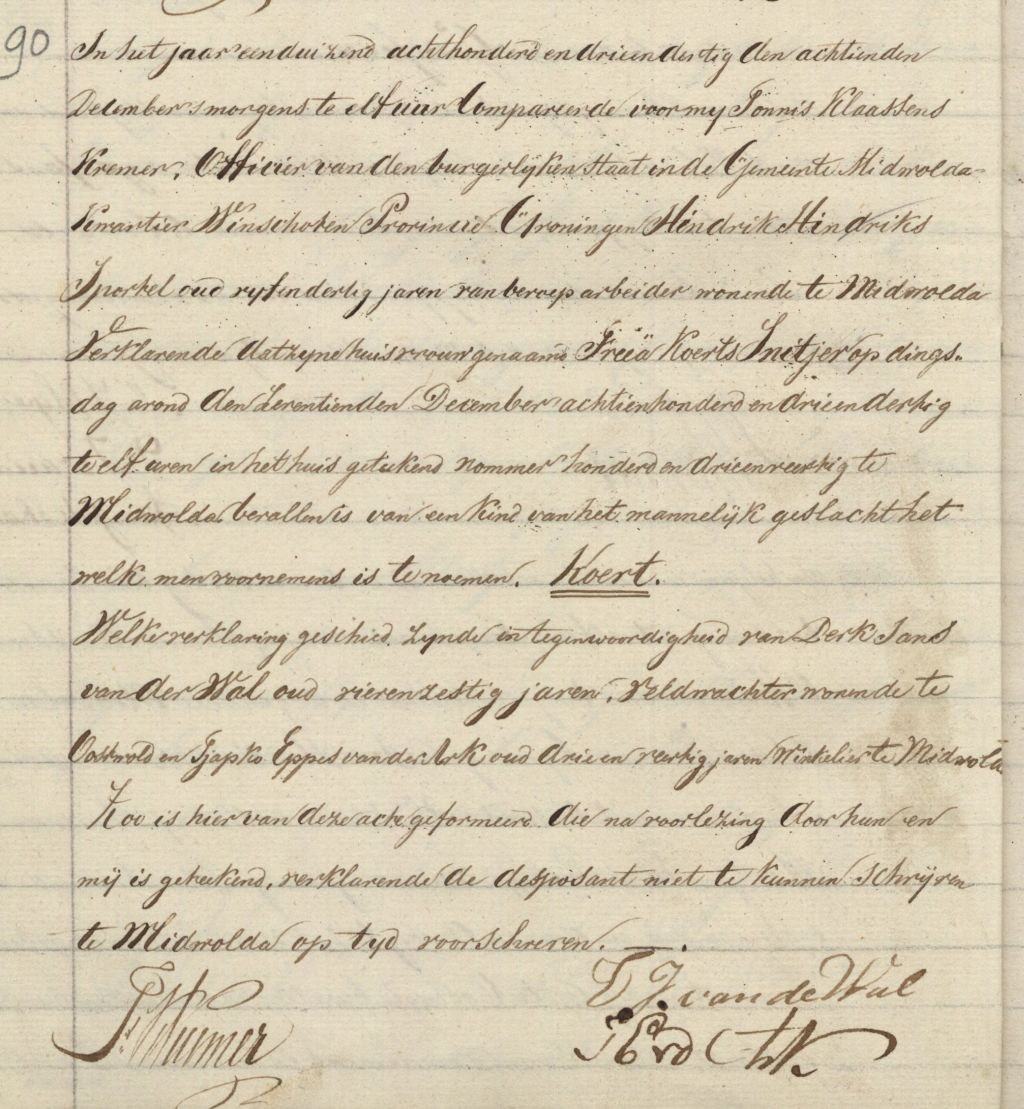 90
In het jaar eenduizend achthonderd en drieendertig den achtienden
December s morgens te elf uur Compareerde voor my Tonnis Klaassens
Kremer, Officier van den burgerlyken Staat in de Gemeente Midwolda
Kwartier Winschoten Provincie Groningen Hindrik Hindriks
Sportel oud vyfendertig jaren van beroep arbeider wonende te Midwolda
Verklarende dat zyne huisvrouw genaamd Freeia Koerts Snitjer op dings-
dag avond den Zeventienden December achtienhonderd en drieendertig
te elf uren in het huis getekend nommer honderd en drieenveertig te
Midwolda bevallen is van een kind van het mannelijk geslacht het
welk men voornemens is te noemen. Koert.
Welke verklaring geschied zynde in tegenwoordigheid van Derk Jans
van der Wal oud vierenzestig jaren, Veldwachter wonende te
Oostwold en Tjapko Eppes van der Ark oud drie en veertig jaren Winkelier te Midwolda
Zoo is hier van deze acte geformeerd die na voorlezing door hun en
mij is geteekend, verklarende de desposant niet te kunnen schrijven
te Midwolda op tyd voorschreven.
D J. van de Wal
T Kremer